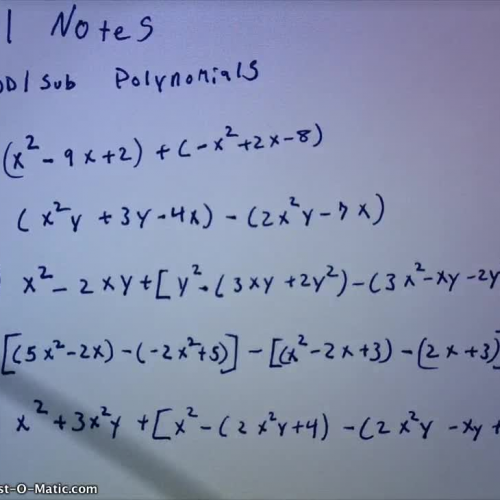 1 Notes
DD/Sub Polynomials
(x² - 9x+2) + (-x²+2x-8)
(x²y +3y-4x) - (2x²y-7x)
x² - 2xy+[y²-(3xy+2y²)-(3x²-xy-2y
[(5x²-2x)-(-2x²+5)]-[(x²-2x+3)-(2x+3)
x²+3x²y+[x²-(2x²y+4)-(2x²y-xy+
st-O-Matic.com